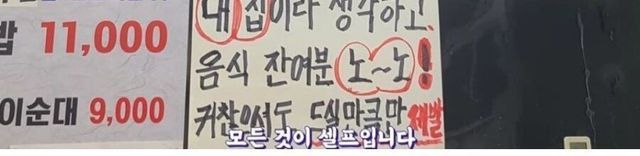 밥 11,000
이순대 9,000
내 집이라 생각하고
음식 잔여분 노~노!
귀찮아서도 드실만큼만 제발
모든 것이 셀프입니다